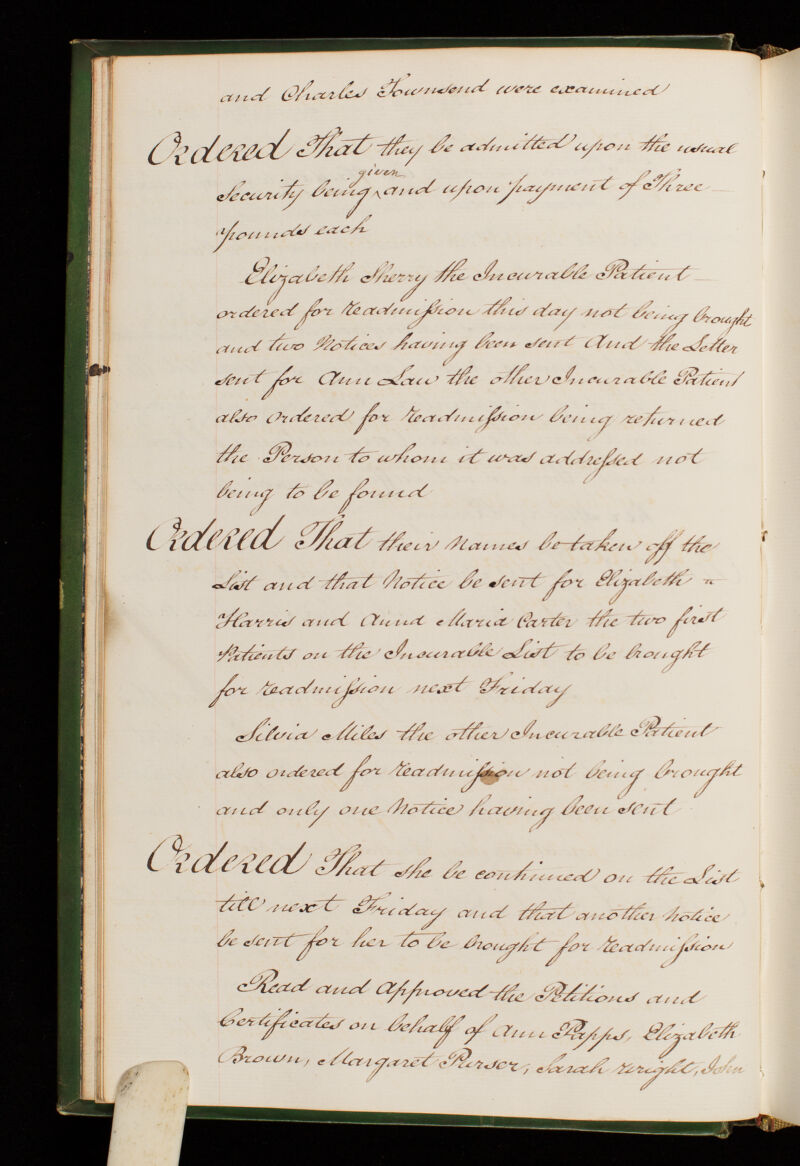 and Charles Townsend were examined
Ordered That they be admitted upon the usual
Security being given and upon payment of Three
pounds each
Elizabeth Sherry the Incurable Patient
ordered for readmission this day not being brought
and two Notices having been sent And the Letter
sent for Ann Law the other Incurable Patient
also ordered for readmission being returned
the Person to whom it was addressed not
being to be found
Ordered That their Names be taken off the
List and that Notice be sent for Elizabeth
Harris and Annd Maria Carter the two first
Patients on the Incurable List to be brought
for readmission next Friday
Silvia Miles the other Incurable Patient
also ordered for readmission not being brought
and only one Notice having been sent
Ordered That she be continued on the List
till next Friday and that another Notice
be sent for her to be brought for readmission
Read and Approved the Petitions and
Certificates on behalf of Ann Papps, Elizabeth
Brown, Margaret Purser, Sarah Wright, John